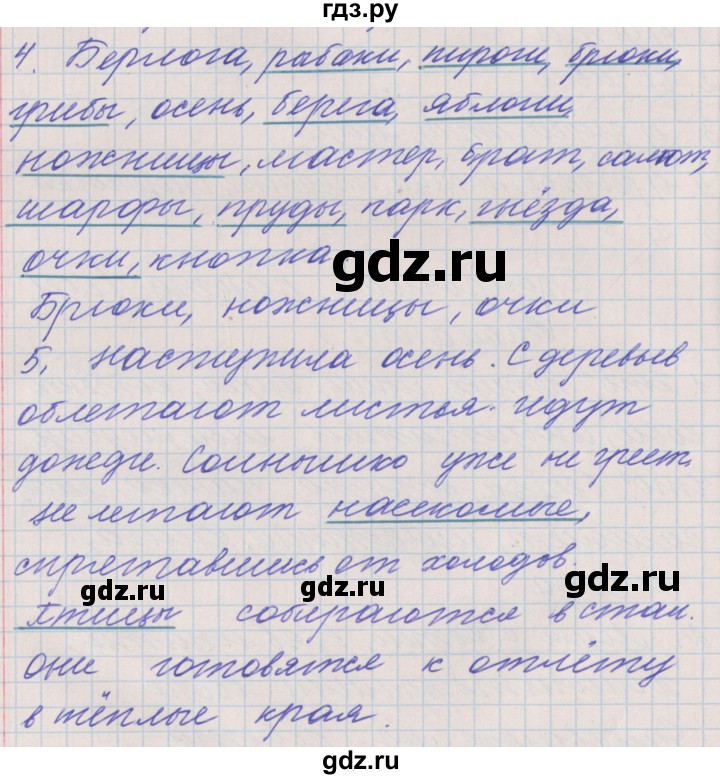 гдз.ру
4. Берлога, рыбаки, пироги, брюки,
грибы, осень, берега, яблони,
ножницы, мастер, брат, салют,
шарфы, пруды, парк, гнёзда,
очки, кнопка
gdz.ru
Брюки, ножницы, очки
5. Наступила осень. С деревьев
облетают листья. Идут
дожди. Солнышко уже не греет.
Не летают насекомые,
спрятавшись от холодов.
gdz.ru gdz.ru gdz.ru
Птицы собираются в стаи.
Они готовятся к отлёту
в тёплые края.
gdz.ru